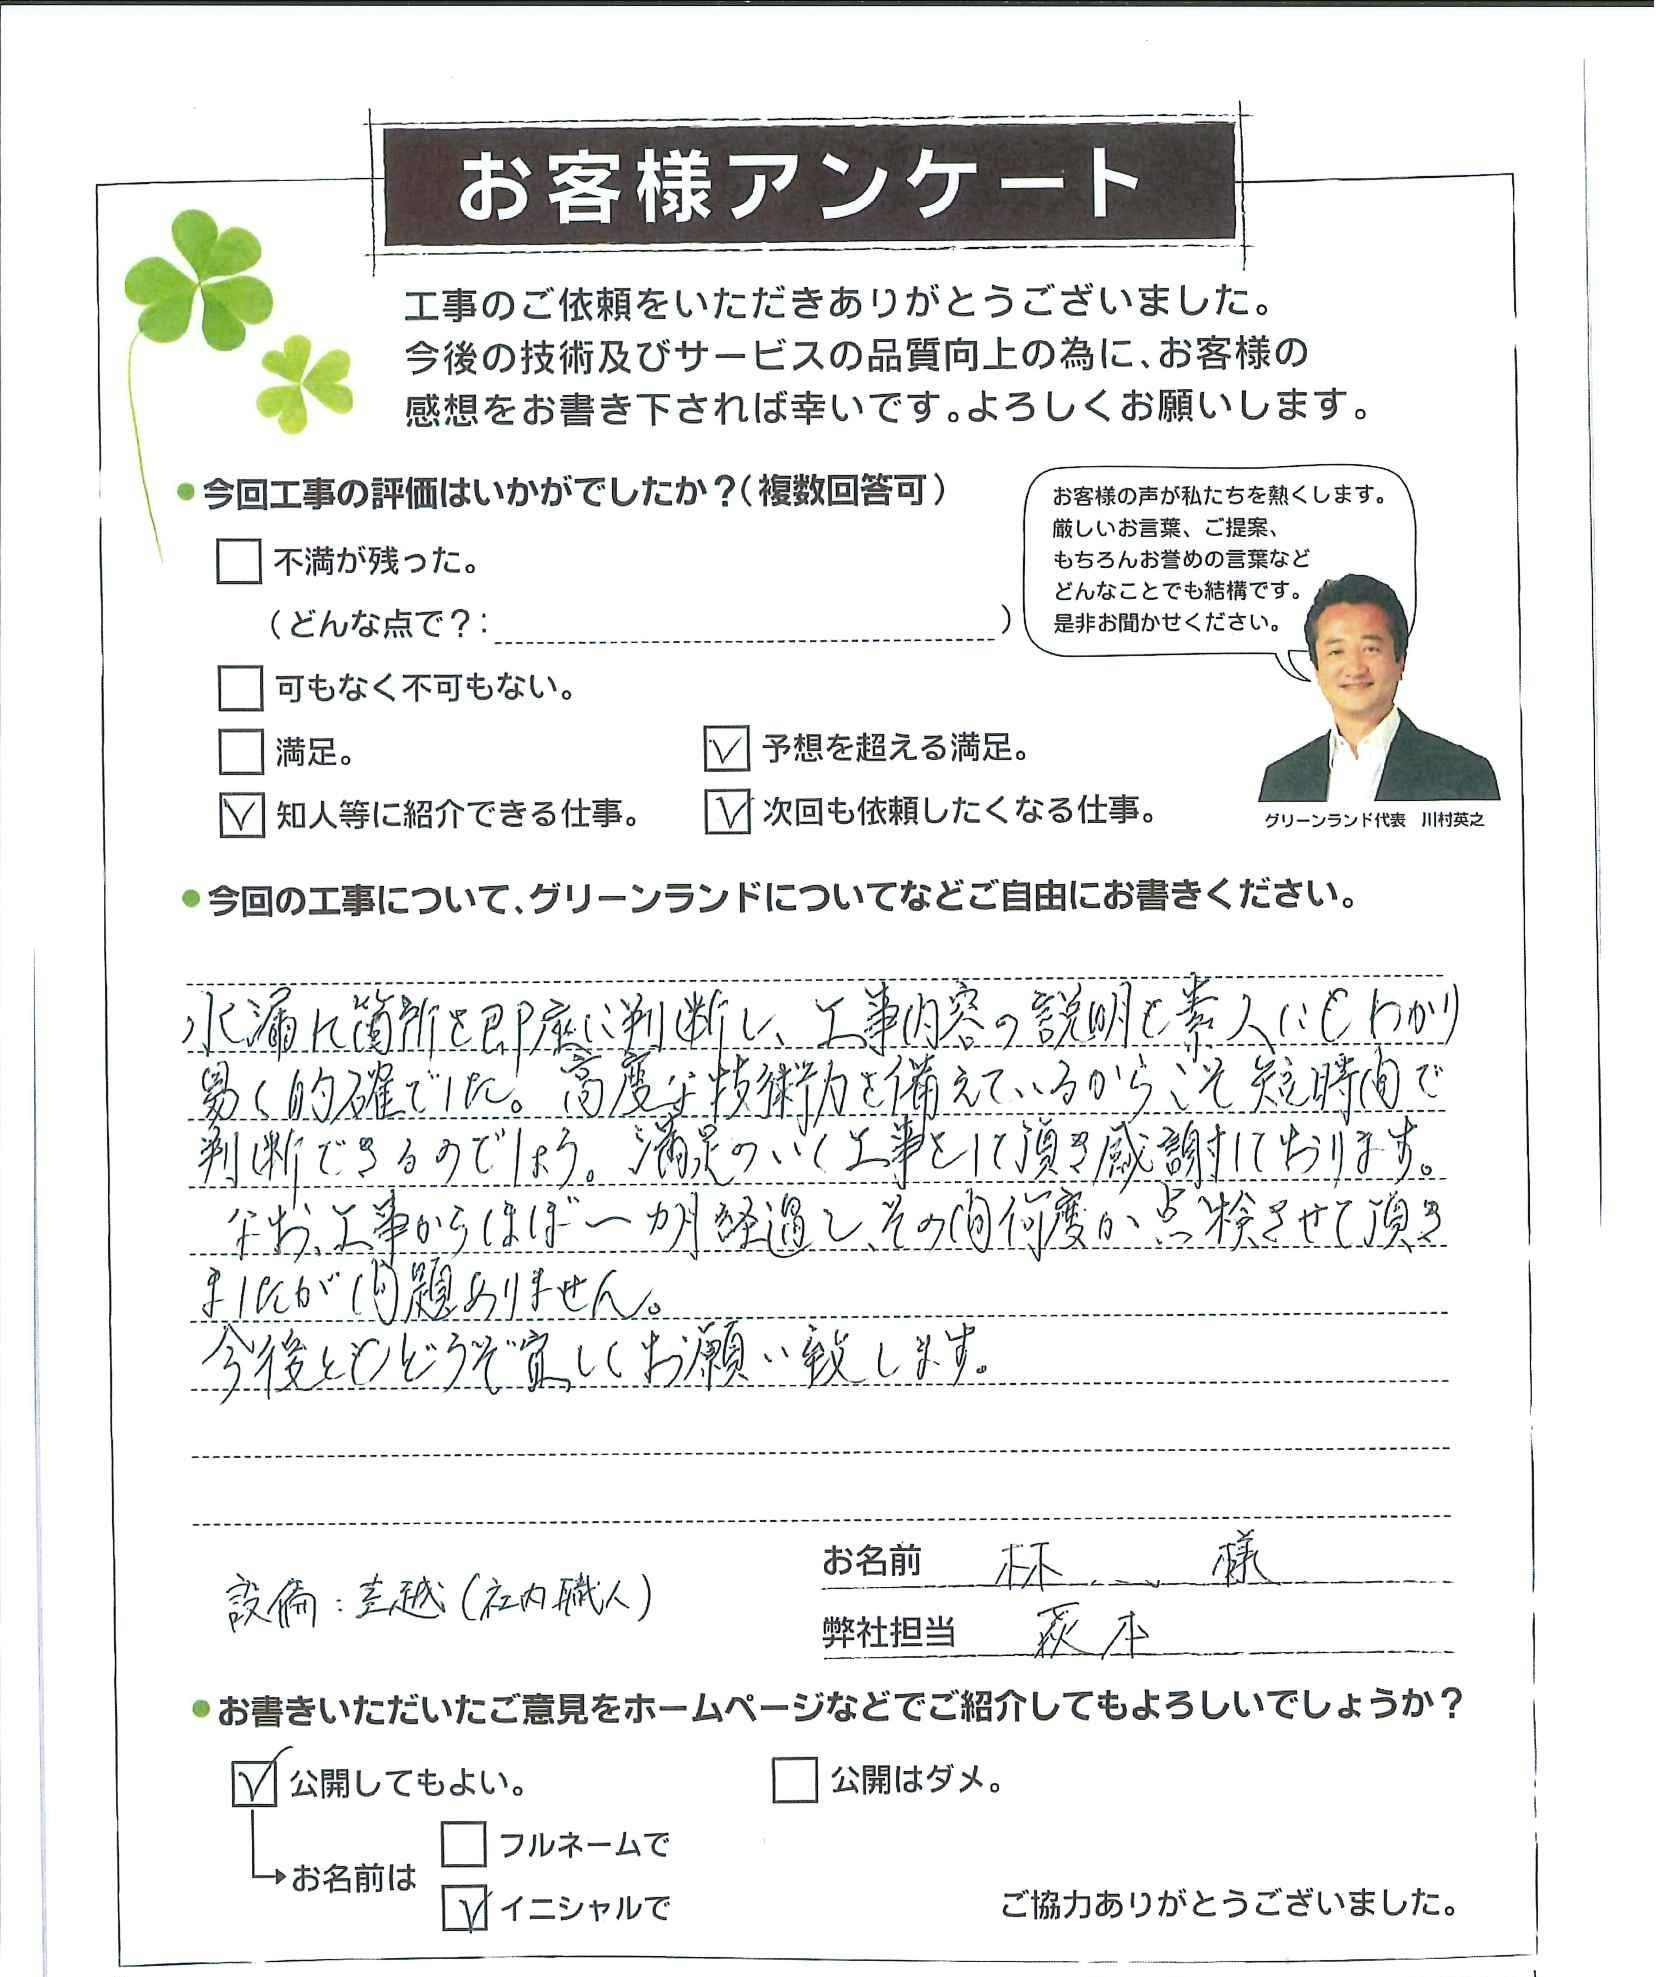 お客様アンケート
工事のご依頼をいただきありがとうございました。
今後の技術及びサービスの品質向上の為に、お客様の
感想をお書き下されば幸いです。よろしくお願いします。
●今回工事の評価はいかがでしたか？（複数回答可）
不満が残った。
（どんな点で？：　）
可もなく不可もない。
満足。
予想を超える満足。
知人等に紹介できる仕事。
次回も依頼したくなる仕事。
お客様の声が私たちを熱くします。
厳しいお言葉、ご提案、
もちろんお誉めの言葉など
どんなことでも結構です。
是非お聞かせください。
グリーンランド代表　川村英之
●今回の工事について、グリーンランドについてなどご自由にお書きください。
水漏れ箇所を即座に判断し、工事内容の説明も素人にもわかり
易く的確でした。高度な技術力を備えているからこそ短時間で
判断できるのでしょう。満足のいく工事をして頂き感謝しております。
なお、工事からほぼ一カ月経過し、その間何度か点検させて頂き
ましたが問題ありません。
今後ともどうぞ宜しくお願い致します。
お名前　林　様
設備：　越（社内職人）
弊社担当　萩本
●お書きいただいたご意見をホームページなどでご紹介してもよろしいでしょうか？
公開してもよい。
公開はダメ。
お名前は
フルネームで
イニシャルで
ご協力ありがとうございました。